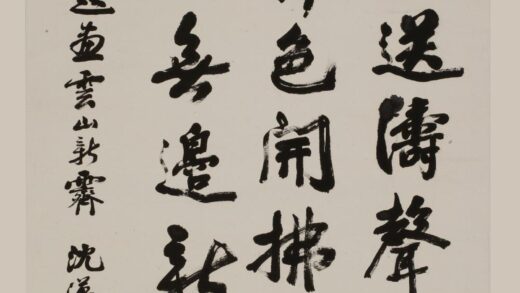 送濤聲
色開拂
無邊新
畫雲山新霽 沈